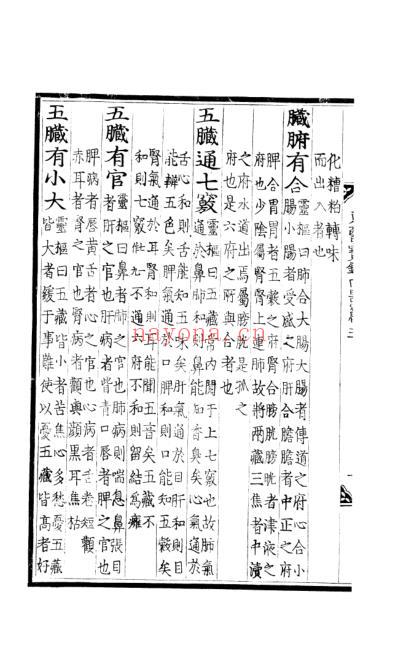 化糟粕轉味
而出入者也
臟腑有合
靈樞曰肺合大腸大腸者傳道之府心合小
腸小腸者受盛之府肝合膽膽者中正之府
脾合胃胃者五穀之府腎合膀胱膀胱者津液之
府也少陰屬腎腎上連肺故將兩藏三焦者中瀆
之府水道出焉屬膀胱是孤之
府也是六府之所與合者也
五臟通七竅
靈樞曰五藏常內閱于上七竅也故肺氣
通於鼻肺和則鼻能知香臭矣心氣通於
舌心和則舌能知五味矣肝氣通於目肝和則目
能辨五色矣脾氣通於口脾和則口能知五穀矣
腎氣通於耳腎和則耳能聞五音矣五藏不
和則七竅不通六府不和則留結爲癰
五臟有官
靈樞曰鼻者肺之官也肺病則喘息鼻張目
者肝之官也肝病者眥青口唇者脾之官也
脾病者唇黃舌者心之官也心病者舌卷短顴
赤耳者腎之官也腎病者顴與顏黑耳焦枯
五臟有小大
靈樞曰五藏皆小者苦焦心多愁憂五藏
皆大者緩於事難使以憂五藏皆高者好
nayona.cn